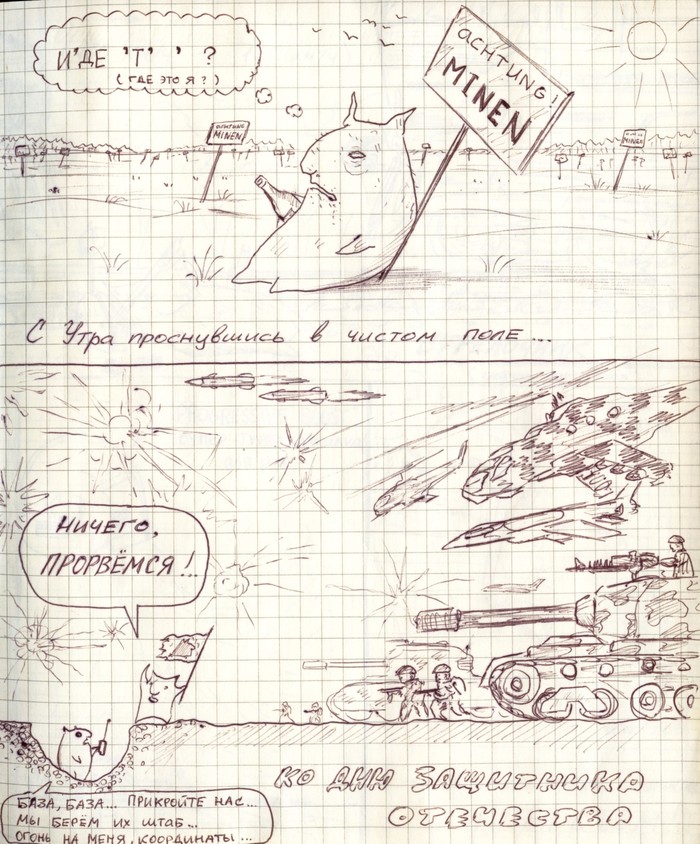 И'ДЕ 'Т' ' ?
(ГДЕ ЭТО Я?)
ACHTUNG!
MINEN
ACHTUNG
MINEN
MINEN
С Утра проснувшись в чистом поле...
НИЧЕГО,
ПРОРВЁМСЯ!..
БАЗА, БАЗА... ПРИКРОЙТЕ НАС...
МЫ БЕРЁМ ИХ ШТАБ...
ОГОНЬ НА МЕНЯ, КООРДИНАТЫ...
КО ДНЮ ЗАЩИТНИКА
ОТЕЧЕСТВА